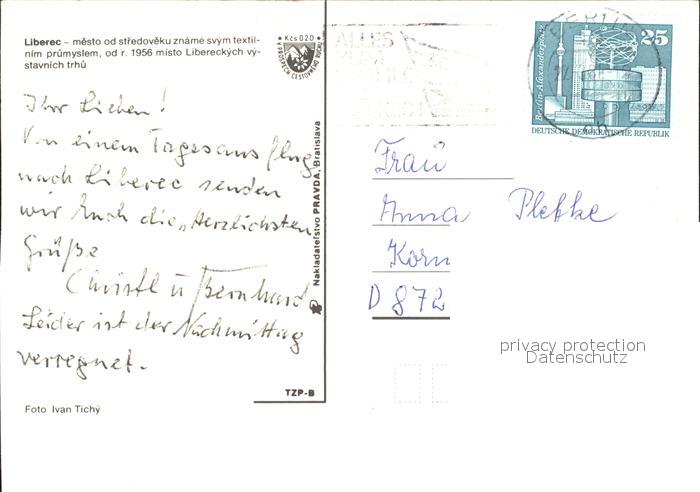 Liberec – město od středověku známé svým textil-
ním průmyslem, od r. 1956 místo Libereckých vý-
stavních trhů
Kčs 0,20
Ihr Lieben!
Von einem Tagesausflug
nach Liberec senden
wir Euch die „Herzlichsten
Grüße
Christl u Bernhard
Leider ist der Nachmittag
verregnet.
Foto Ivan Tichý
TZP-B
Nakladateľstvo PRAVDA, Bratislava
ALLES
BERLIN
25
Berlin-Alexanderplatz
DEUTSCHE DEMOKRATISCHE REPUBLIK
Frau
Anna Plefke
Korn
D 872
privacy protection
Datenschutz